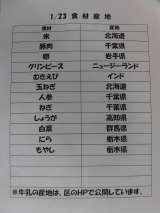 1/23 食材産地
食材 産地
米 北海道
豚肉 千葉県
卵 岩手県
グリンピース ニュージーランド
むきえび インド
玉ねぎ 北海道
人参 千葉県
ねぎ 千葉県
しょうが 高知県
白菜 群馬県
にら 栃木県
もやし 栃木県
※牛乳の産地は、区のHPで公開しています。